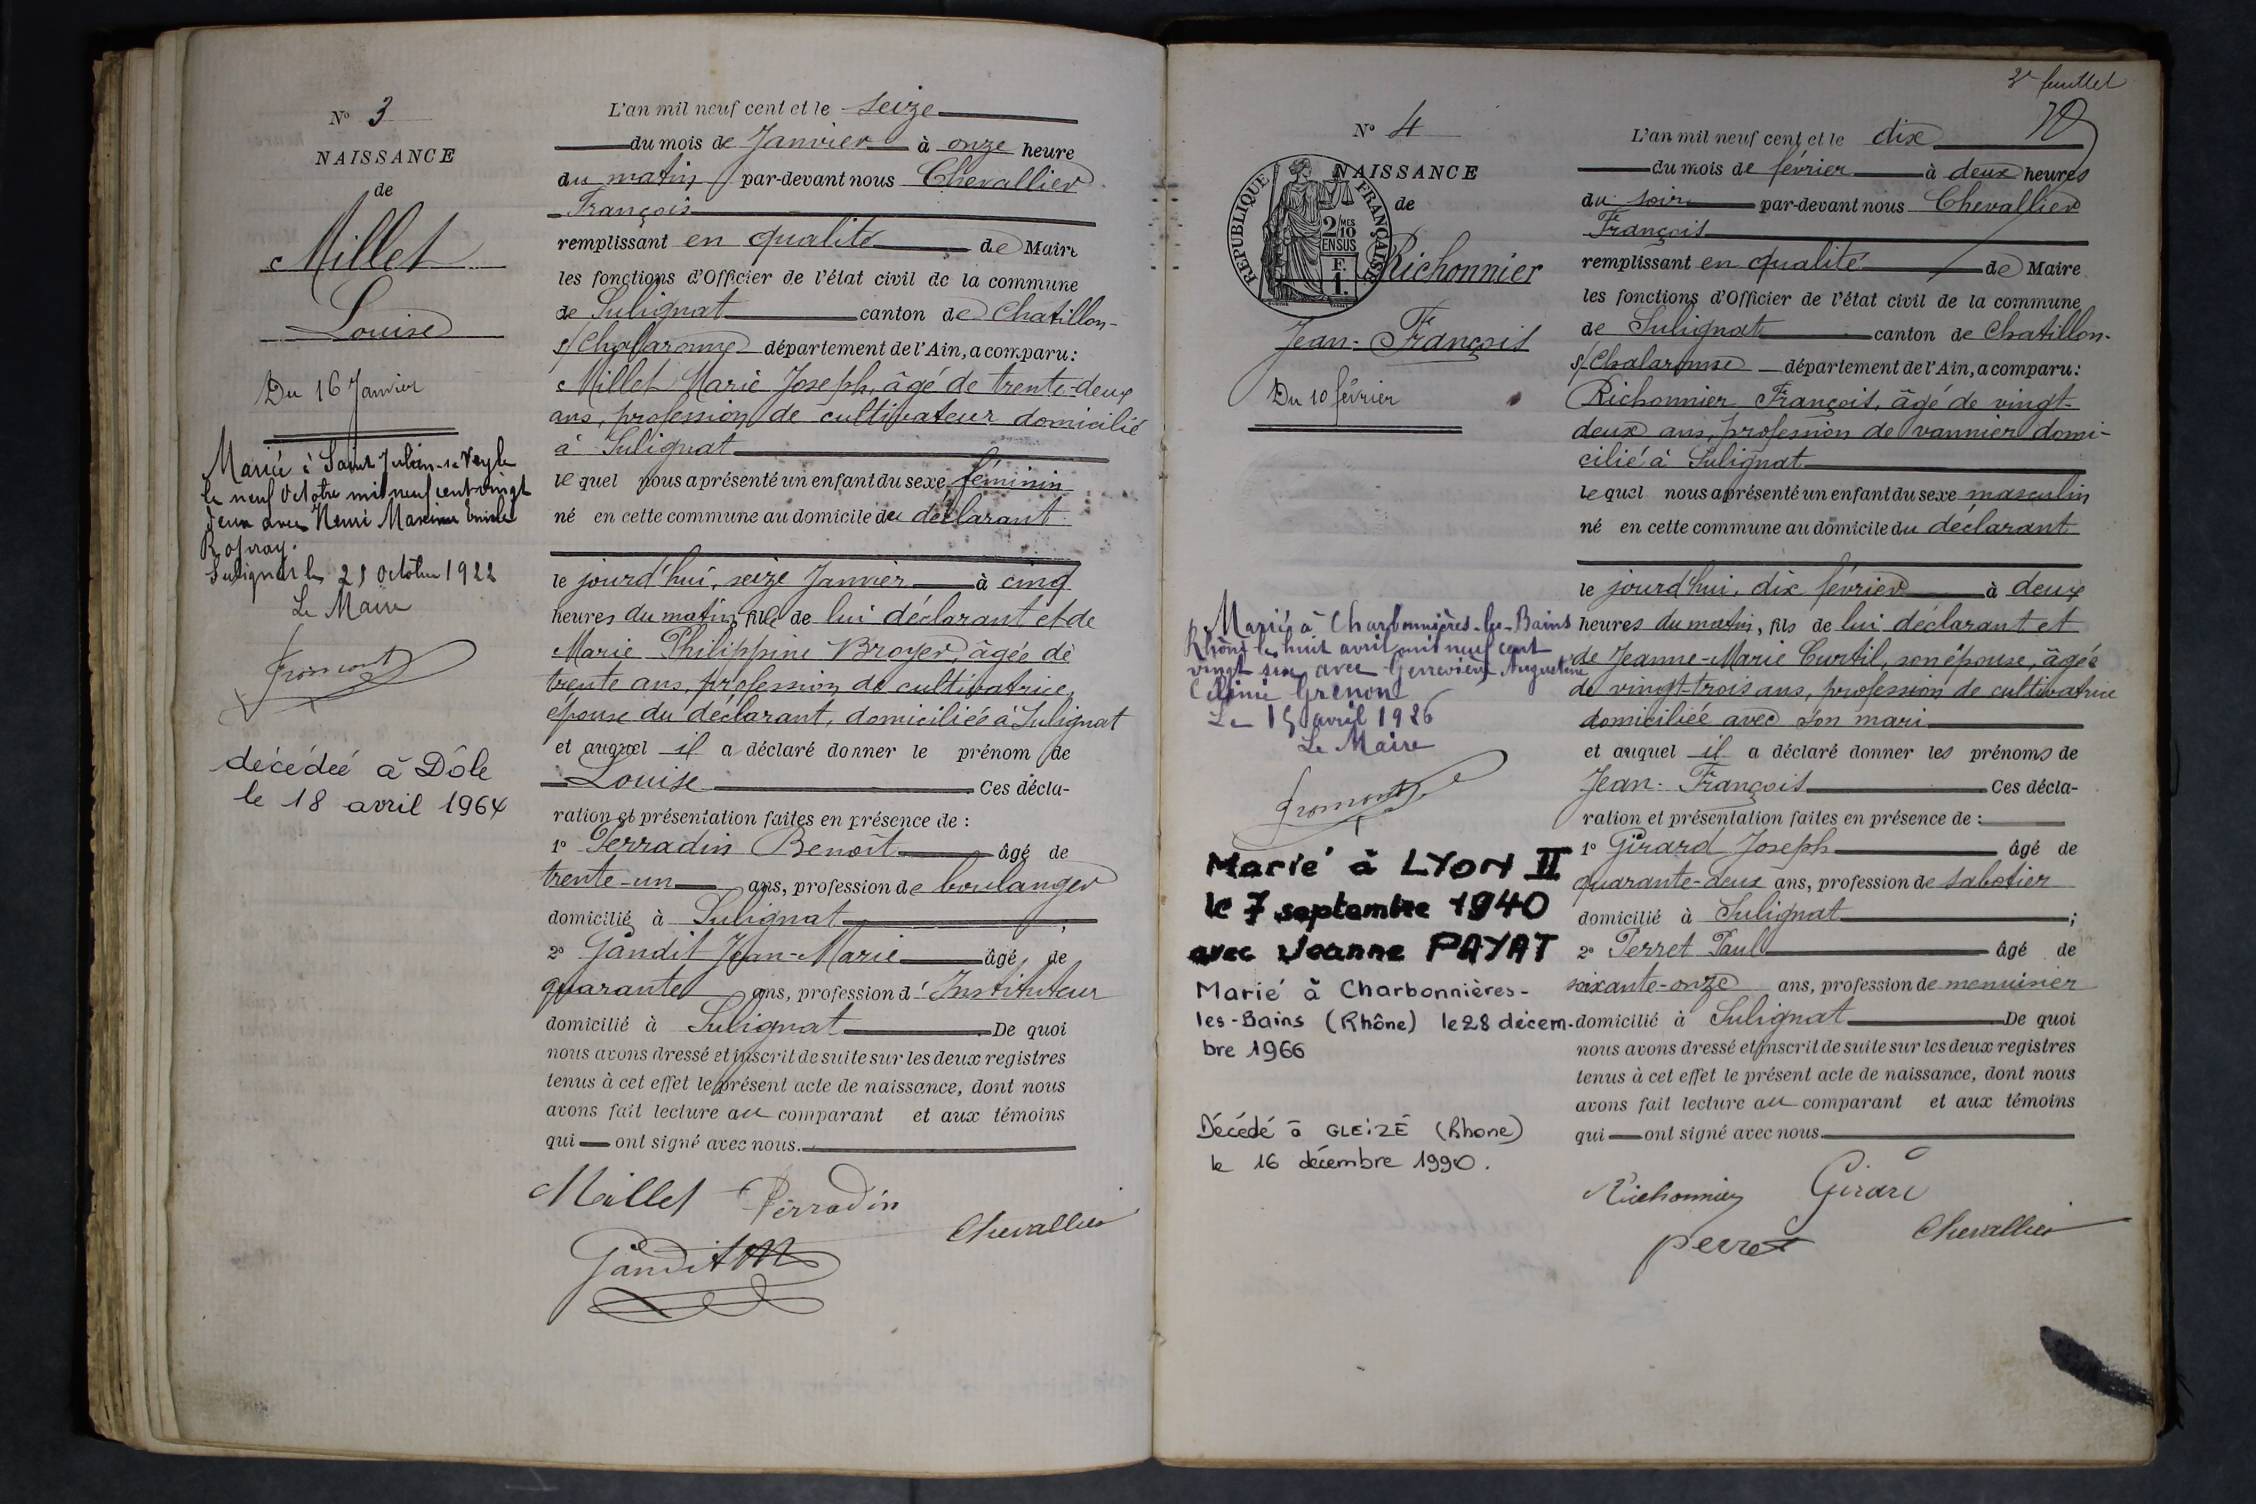 N° 3
NAISSANCE
de
Millet
Louise
Du 16 Janvier
Mariée à Saint Julien-s-Veyle
le neuf Octobre mil neuf cent vingt
deux avec Henri Maxime Emile
Sulignat le 21 Octobre 1922
Le Maire
Fromont
décédée à Dôle
le 18 avril 1964
L'an mil neuf cent et le seize
du mois de Janvier à onze heure
du matin par-devant nous Chevallier
François
remplissant en qualité de Maire
les fonctions d'Officier de l'état civil de la commune
de Sulignat canton de Chatillon-
s/Chalaronne département de l'Ain, a comparu:
Millet Marie Joseph, âgé de trente-deux
ans, profession de cultivateur domicilié
à Sulignat
le quel nous a présenté un enfant du sexe féminin
né en cette commune au domicile du déclarant
le jourd'hui, seize Janvier à cinq
heures du matin, fille de lui déclarant et de
Marie Philippine Broyer, âgée de
trente ans, profession de cultivatrice,
épouse du déclarant, domiciliée à Sulignat
et auquel il a déclaré donner le prénom de
Louise Ces décla-
ration et présentation faites en présence de :
1° Perradin Benoît âgé de
trente-un ans, profession de boulanger
domicilié à Sulignat ;
2° Gandit Jean-Marie âgé de
quarante ans, profession d'Instituteur
domicilié à Sulignat De quoi
nous avons dressé et inscrit de suite sur les deux registres
tenus à cet effet le présent acte de naissance, dont nous
avons fait lecture au comparant et aux témoins
qui ont signé avec nous.
Millet Perradin
Chevallier
Gandit JM
2e feuillet
N° 4
NAISSANCE
de
REPUBLIQUE FRANÇAISE
2/10 MES
EN SUS
F.
1.
Richonnier
Jean-François
Du 10 février
Marié à Charbonnières-les-Bains
Rhône le huit avril mil neuf cent
vingt six avec Geneviève Augustine
Célinie Grenon
Le 15 avril 1926
Le Maire
Fromont
Marié à LYON II
le 7 septembre 1940
avec Jeanne PAYAT
Marié à Charbonnières-
les-Bains (Rhône) le 28 décem-
bre 1966
Décédé à GLEIZÉ (Rhone)
le 16 décembre 1990.
L'an mil neuf cent et le dix
du mois de février à deux heures
du soir par-devant nous Chevallier
François
remplissant en qualité de Maire
les fonctions d'Officier de l'état civil de la commune
de Sulignat canton de Chatillon-
s/Chalaronne département de l'Ain, a comparu:
Richonnier François, âgé de vingt-
deux ans, profession de vannier domi-
cilié à Sulignat
le quel nous a présenté un enfant du sexe masculin
né en cette commune au domicile du déclarant
le jourd'hui, dix février à deux
heures du matin, fils de lui déclarant et
de Jeanne-Marie Curtil, son épouse, âgée
de vingt-trois ans, profession de cultivatrice
domiciliée avec son mari
et auquel il a déclaré donner les prénoms de
Jean-François Ces décla-
ration et présentation faites en présence de :
1° Girard Joseph âgé de
quarante-deux ans, profession de sabotier
domicilié à Sulignat ;
2° Perret Paul âgé de
soixante-onze ans, profession de menuisier
domicilié à Sulignat De quoi
nous avons dressé et inscrit de suite sur les deux registres
tenus à cet effet le présent acte de naissance, dont nous
avons fait lecture au comparant et aux témoins
qui ont signé avec nous
Richonnier Girard
Perret Chevallier